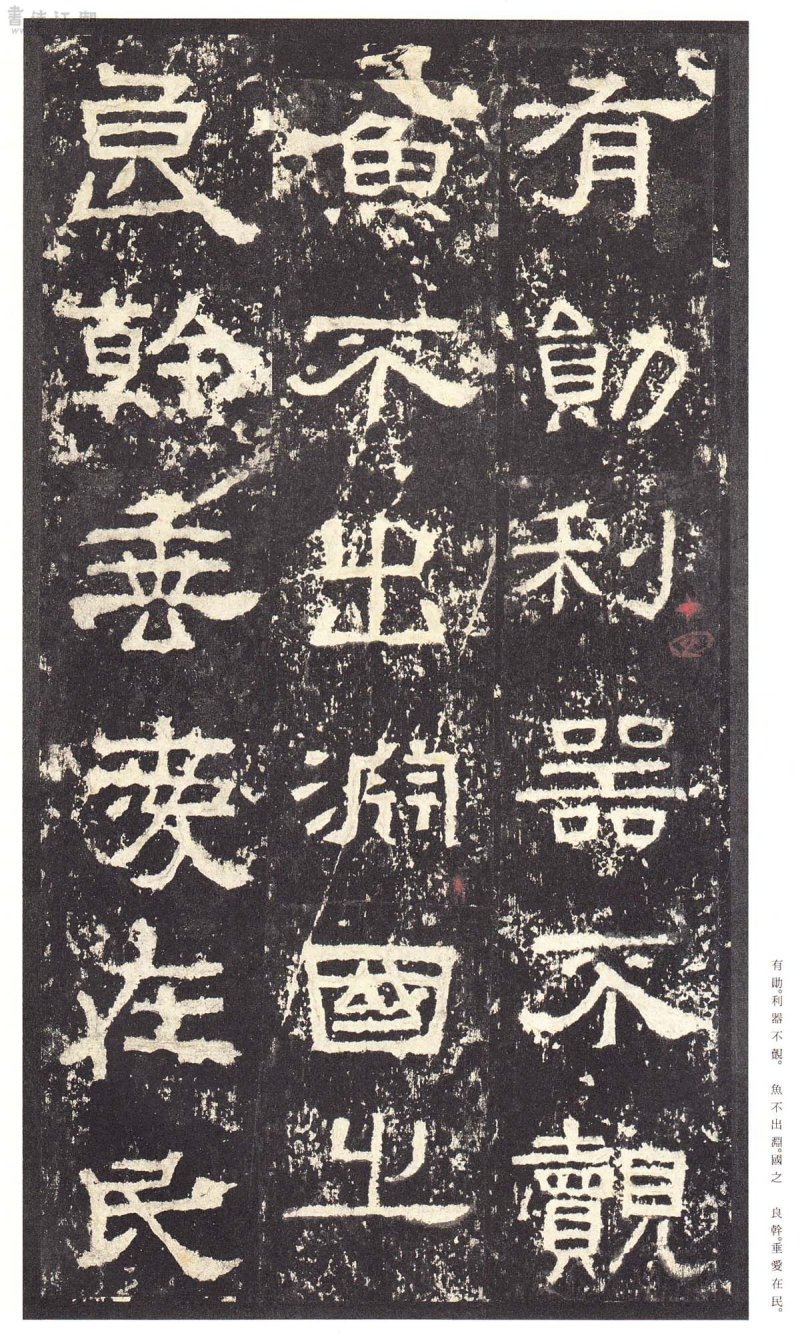 有勛利器不覿
魚不出淵國之
良幹垂愛在民
有勛。利器不覿。 魚不出淵。國之 良幹。垂愛在民。